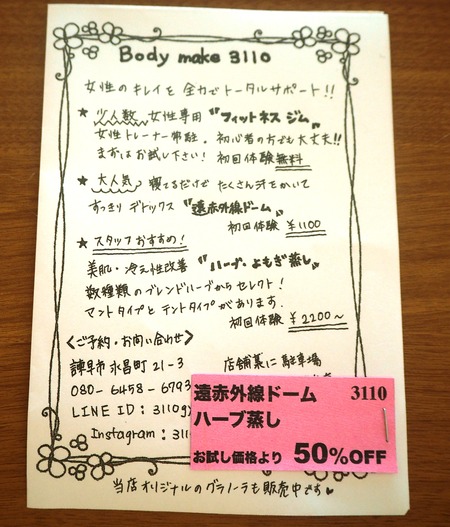 Body make 3110
女性のキレイを全力でトータルサポート!!
★少人数 女性専用 "フィットネス ジム"
女性トレーナー常駐。初心者の方でも大丈夫!!
まずはお試し下さい! 初回体験無料
★大人気 寝てるだけでたくさん汗をかいて
すっきりデトックス "遠赤外線ドーム"
初回体験 ¥1100
★スタッフおすすめ!
美肌・冷え性改善 "ハーブ・よもぎ蒸し"
数種類のブレンドハーブからセレクト!
マントタイプとテントタイプがあります。
初回体験 ¥2200~
<ご予約・お問い合わせ>
諫早市永昌町21-3
080-6458-6793
LINE ID: 3110g
Instagram: 311
店舗裏に駐車場
遠赤外線ドーム 3110
ハーブ蒸し
お試し価格より 50%OFF
当店オリジナルのグラノーラも販売中です♥